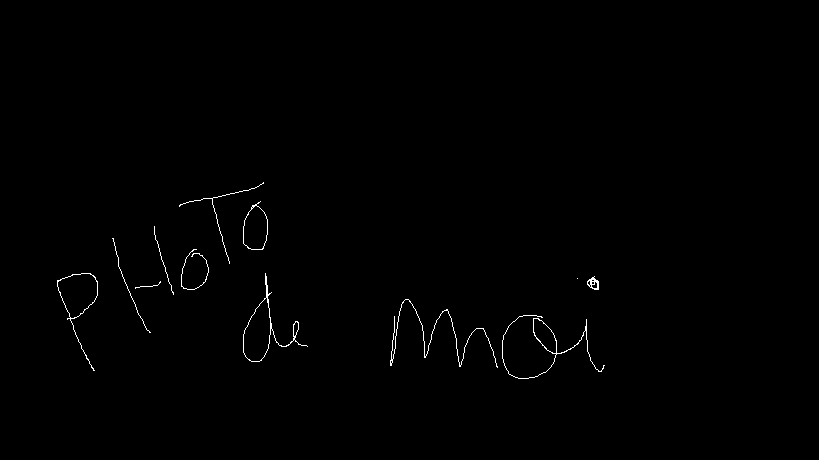 PHoTo
de moi